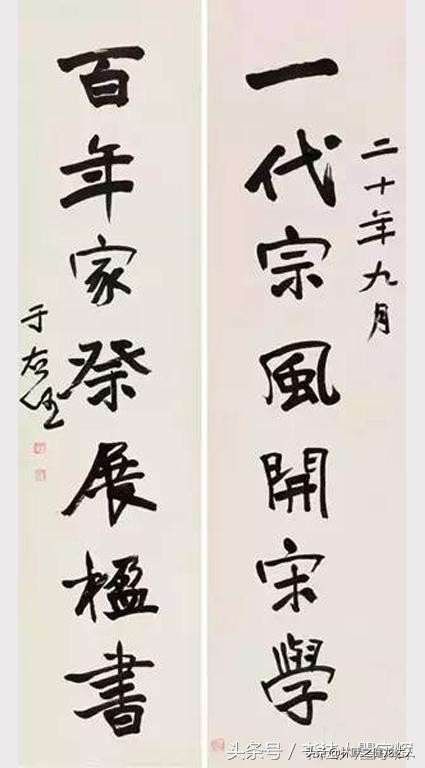 二十年九月
一代宗風開宋學
百年家祭展楹書
于右任
头条号 /